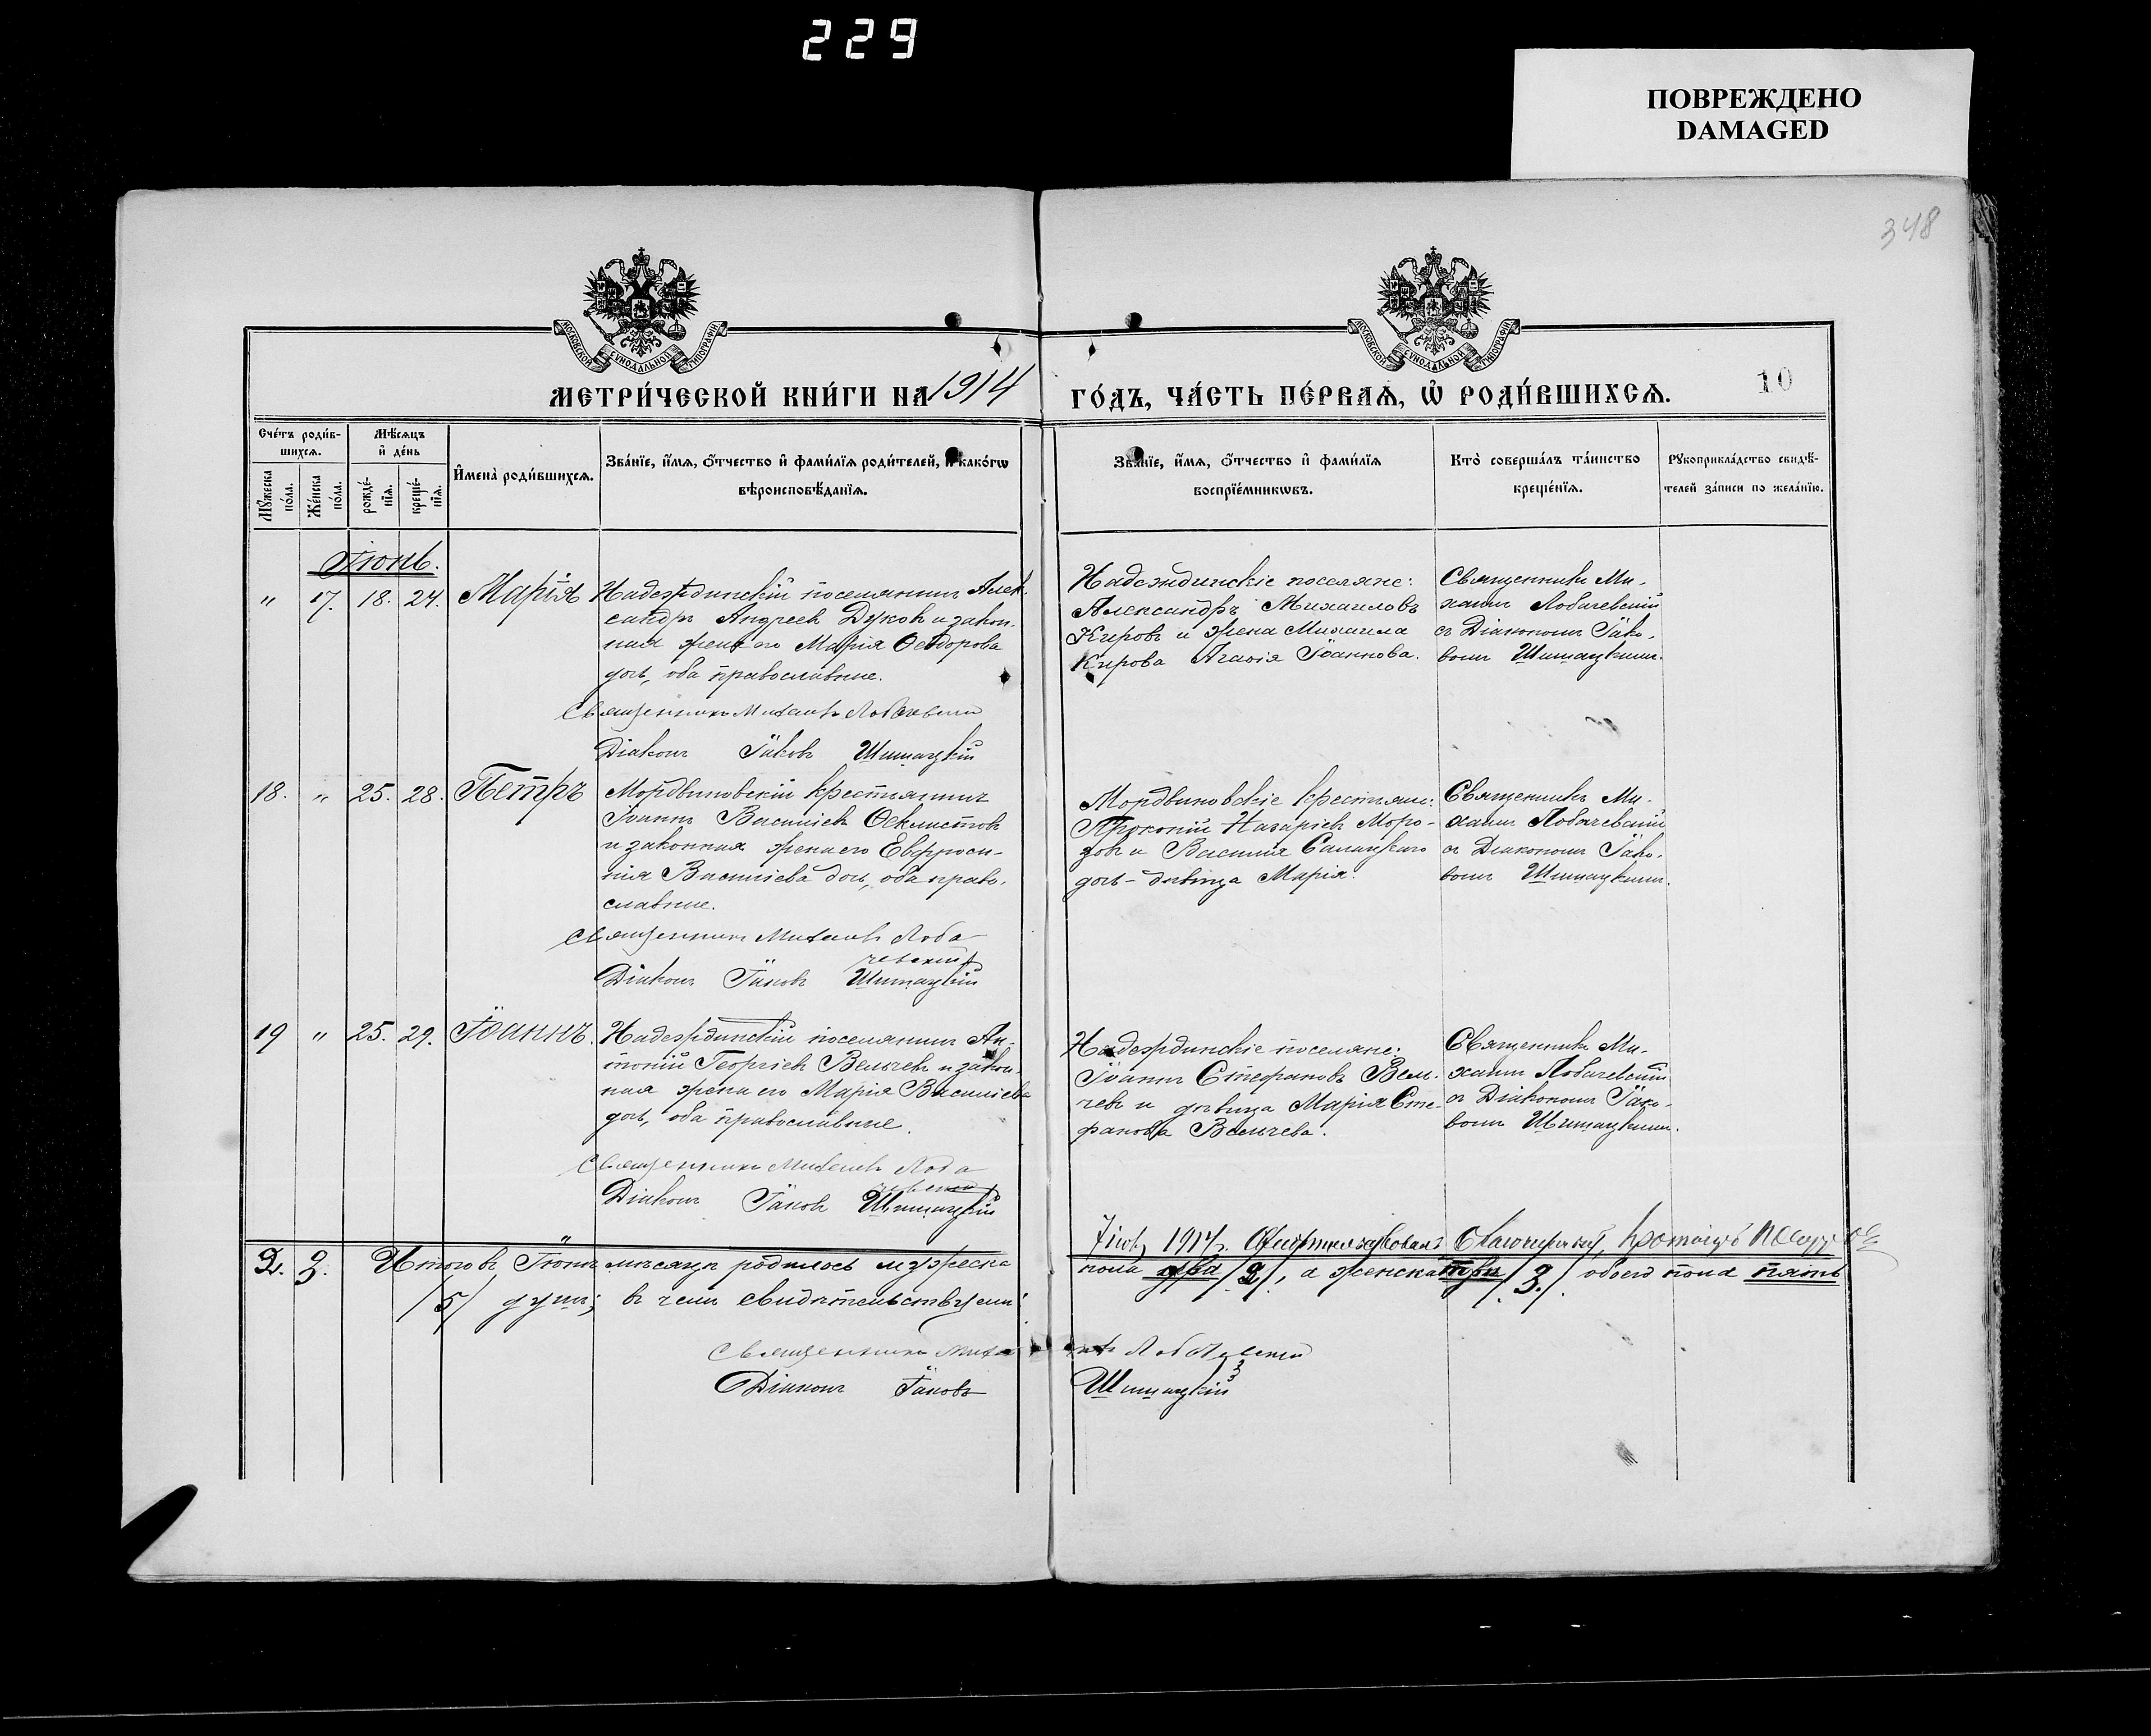 229
ПОВРЕЖДЕНО
DAMAGED
348
МОСКОВСКОЙ СѴНОДАЛЬНОЙ ТИПОГРАФІИ
МОСКОВСКОЙ СѴНОДАЛЬНОЙ ТИПОГРАФІИ
МЕТРИ́ЧЕСКОЙ КНИ́ГИ НА 1914 ГО́ДЪ, ЧА́СТЬ ПЕ́РВАѦ, Ѡ҆ РОДИ́ВШИХСѦ.
10
Сче́тъ роди́в-
шихсѧ.
Мꙋ́жеска
по́ла.
Же́нска
по́ла.
Мѣ́сѧцъ
и҆ де́нь
рожде́-
нїѧ.
креще́-
нїѧ.
И҆мена̀ роди́вшихсѧ.
Зва́нїе, и҆́мѧ, о҆́тчество и҆ фами́лїѧ роди́телей, и҆ како́гѡ
вѣроисповѣ́данїѧ.
Зва́нїе, и҆́мѧ, о҆́тчество и҆ фами́лїѧ
воспрїе́мникѡвъ.
Кто̀ соверша́лъ та́инство
креще́нїѧ.
Рꙋкоприкла́дство свидѣ́-
телей за́писи по жела́нїю.
Іюнь.
" 17. 18. 24. Марія
Надеждинскій поселянинъ Алек-
сандръ Андреевъ Духовъ и закон-
ная жена его Марія Ѳеодорова
дочь, оба православные.
Священникъ Михаилъ Лобачевскій
Діаконъ Іаковъ Шишацкій
Надеждинскіе поселяне:
Александръ Михаиловъ
Кировъ и жена Михаила
Кирова Агаѳія Іоаннова.
Священникъ Ми-
хаилъ Лобачевскій
съ Діакономъ Іако-
вомъ Шишацкимъ.
18. " 25. 28. Петръ
Мордвиновскій крестьянинъ
Іоаннъ Василіевъ Ѳеклистовъ
и законная жена его Евфроси-
нія Василіева дочь, оба право-
славные.
Священникъ Михаилъ Лоба
чевскій
Діаконъ Іаковъ Шишацкій
Мордвиновскіе крестьяне:
Прокопій Назаріевъ Моро-
зовъ и Василія
дочь - дѣвица Марія.
Священникъ Ми-
хаилъ Лобачевскій
съ Діакономъ Іако-
вомъ Шишацкимъ.
19 " 25. 29. Іоаннъ.
Надеждинскій поселянинъ Ан-
тоній Георгіевъ Вельчевъ и закон-
ная жена его Марія Василіева
дочь, оба православные.
Священникъ Михаилъ Лоба
чевскій
Діаконъ Іаковъ Шишацкій
Надеждинскіе поселяне:
Іоаннъ Стефановъ Вель-
чевъ и дѣвица Марія Сте-
фанова Вельчева.
Священникъ Ми-
хаилъ Лобачевскій
съ Діакономъ Іако-
вомъ Шишацкимъ.
1914 г. Свидѣтельствовалъ Благочинный,
2. 3. Итого въ Іюнѣ мѣсяцѣ родилось мужеска пола два /2/, а женска три /3/. обоего пола пять
/5/ душъ; въ чемъ свидѣтельствуемъ:
Священникъ Михаилъ Лобачевскій
Діаконъ Іаковъ Шишацкій